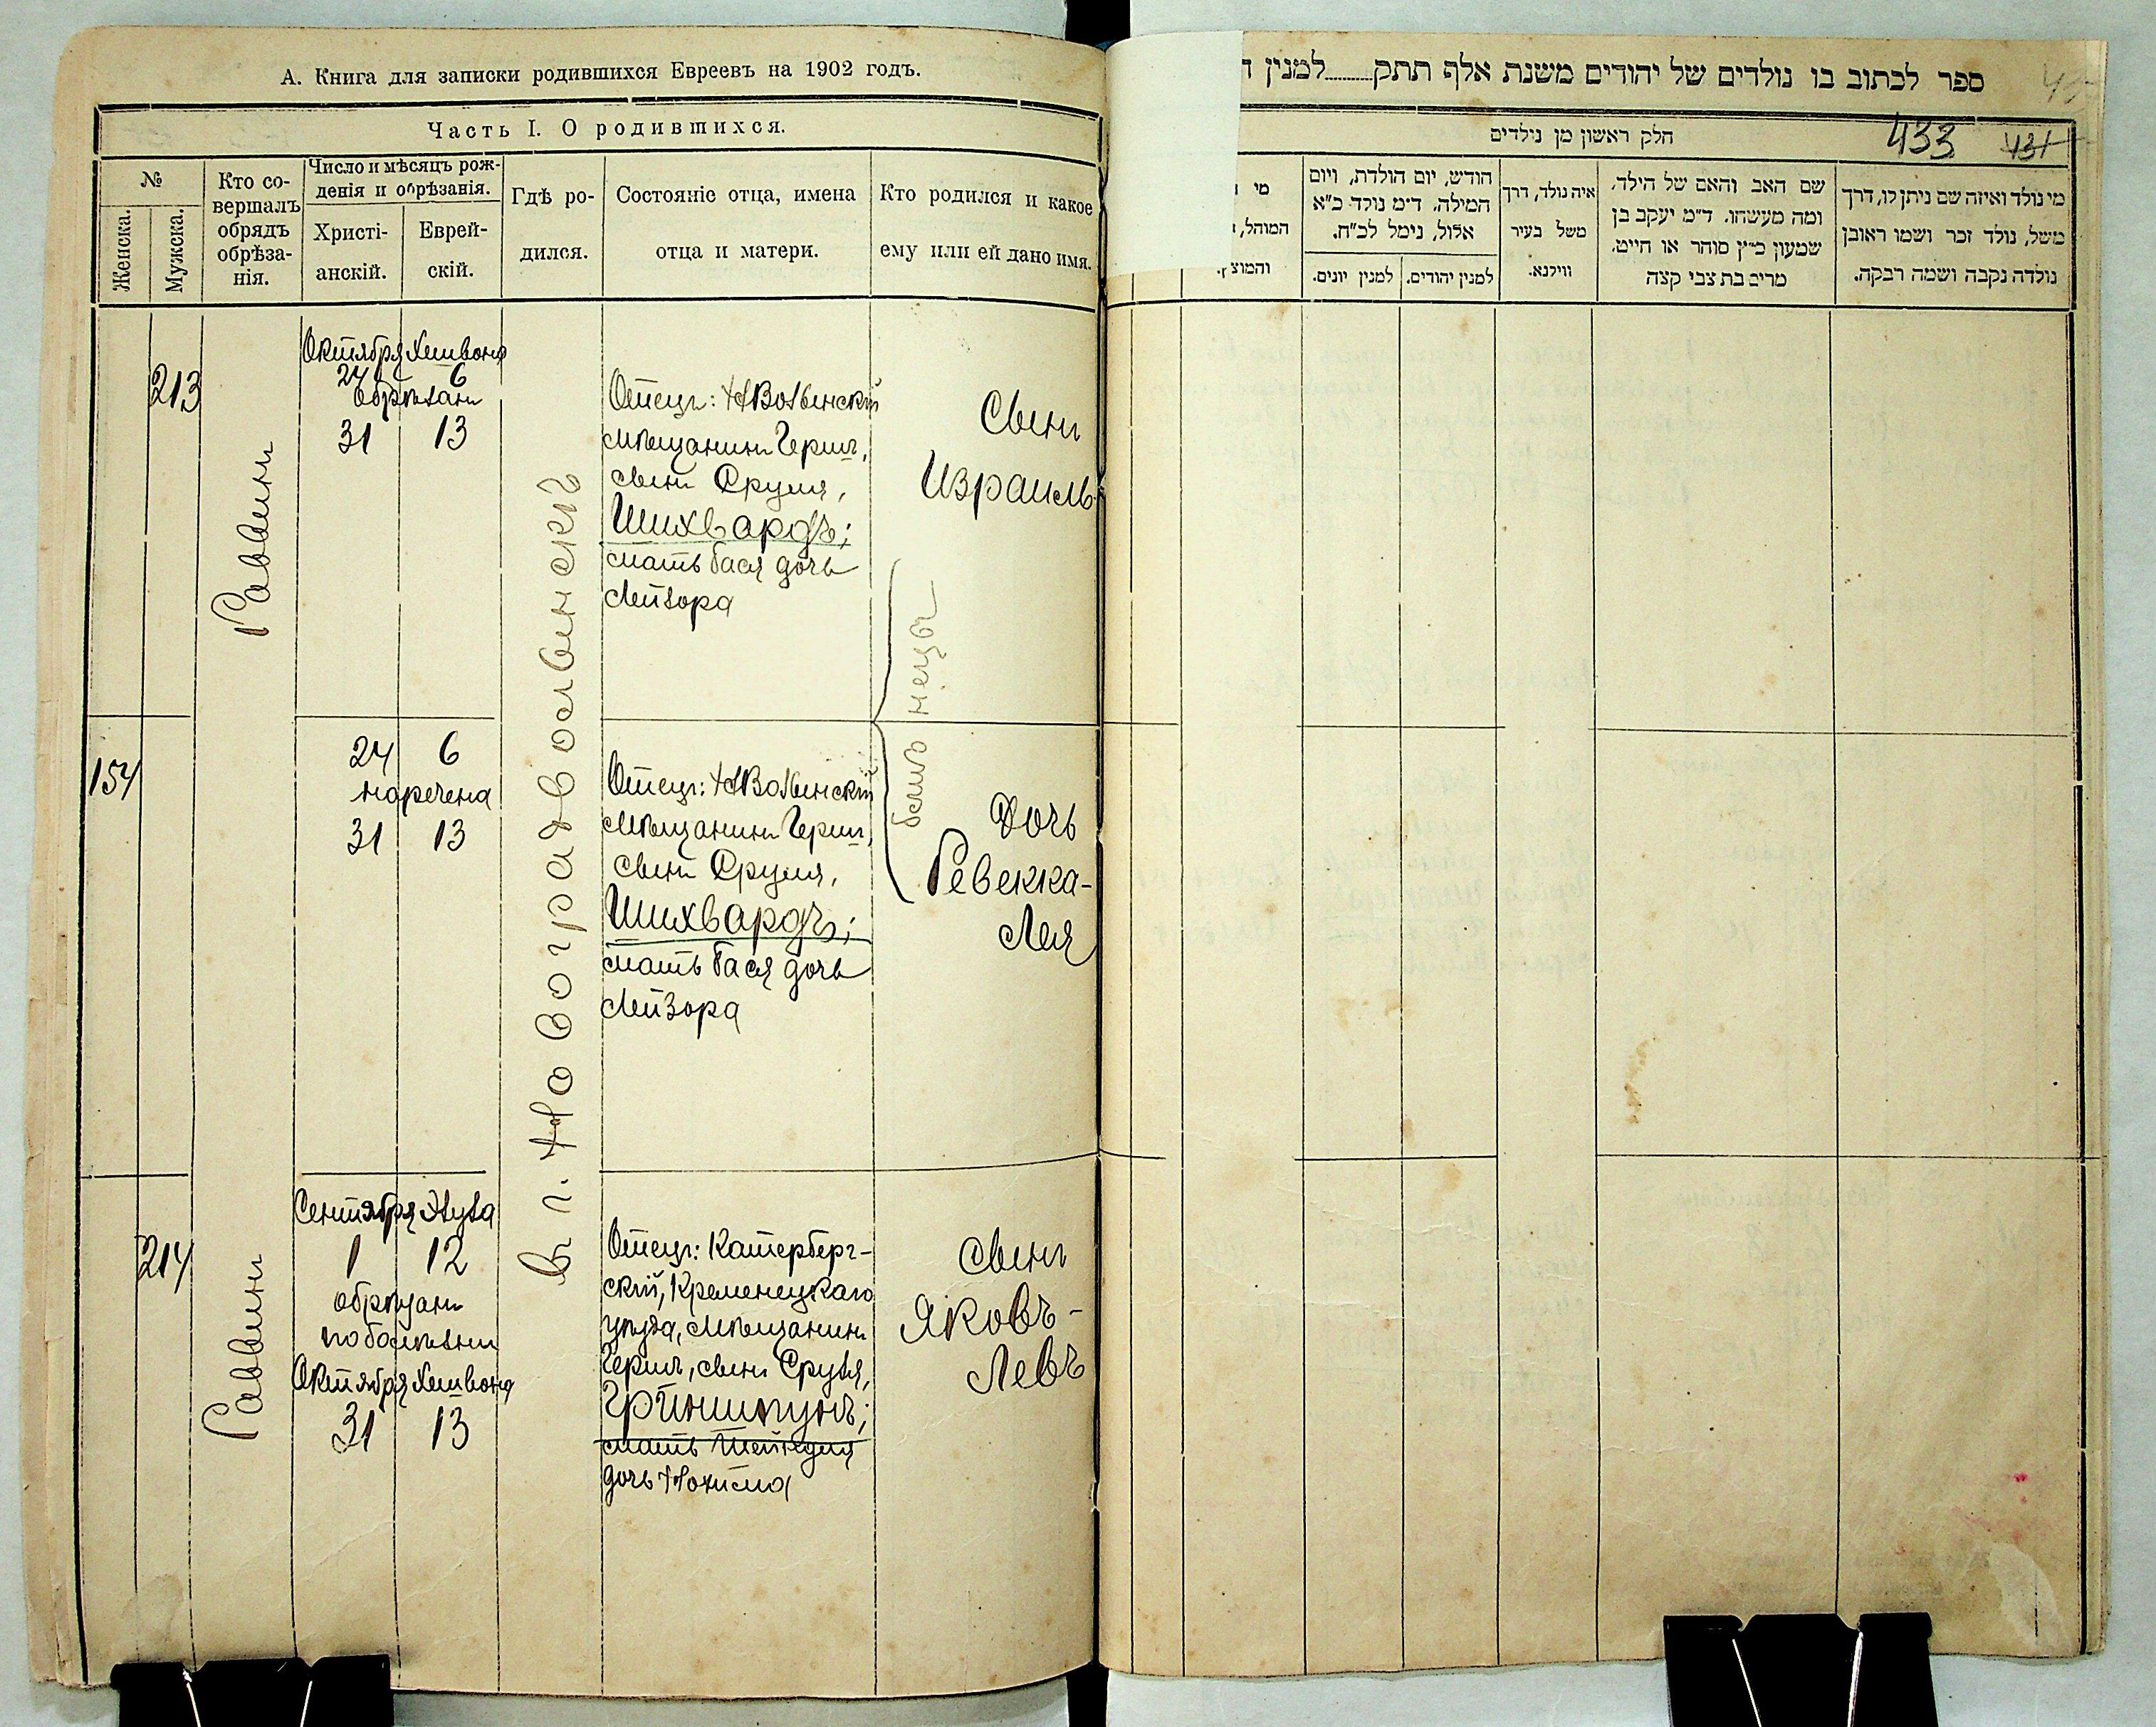 А. Книга для записки родившихся Евреевъ на 1902 годъ.
Часть I. О родившихся.
№
Женска.
Мужска.
Кто со-
вершалъ
обрядъ
обрѣза-
нія.
Число и мѣсяцъ рож-
денія и обрѣзанія.
Христі-
анскій.
Еврей-
скій.
Гдѣ ро-
дился.
Состояніе отца, имена
отца и матери.
Кто родился и какое
ему или ей дано имя.
213
Раввинъ
Октября Хешвона
24 6
обрѣзанъ
31 13
въ г. Новоградволынскѣ
Отецъ: НВолынскій
мѣщанинъ Гершъ,
сынъ Сруля,
Шихвардъ;
мать Бася дочь
Лейзора
Сынъ
Израиль
близнецы
154
24 6
наречена
31 13
Отецъ: НВолынскій
мѣщанинъ Гершъ,
сынъ Сруля,
Шихвардъ;
мать Бася дочь
Лейзора
Дочь
Ревекка-
Лея
214
Раввинъ
Сентября Элула
1 12
обрѣзанъ
по болѣзни
Октября Хешвона
31 13
Отецъ: Катерберг-
скій, Кременецкаго
уѣзда, мѣщанинъ
Гершъ, сынъ Сруля,
мать Шейндля
дочь Нохима
сынъ
Яковъ-
Левъ
ספר לכתוב בו נולדים של יהודים משנת אלף תתק למנין
433 431
חלק ראשון מן נילדים
מי נולד ואיזה שם ניתן לו, דרך
משל, נולד זכר ושמו ראובן
נולדה נקבה ושמה רבקה.
שם האב והאם של הילד,
ומה מעשהו. ד״מ יעקב בן
שמעון כ״ץ סוחר או חייט,
מרים בת צבי קצה
איה נולד, דרך
משל בעיר
ווילנא.
חודש, יום הולדת, ויום
המילה. ד״מ נולד כ״א
אלול, נימל לכ״ח.
למנין יהודים.
למנין יונים.
מי
המוהל,